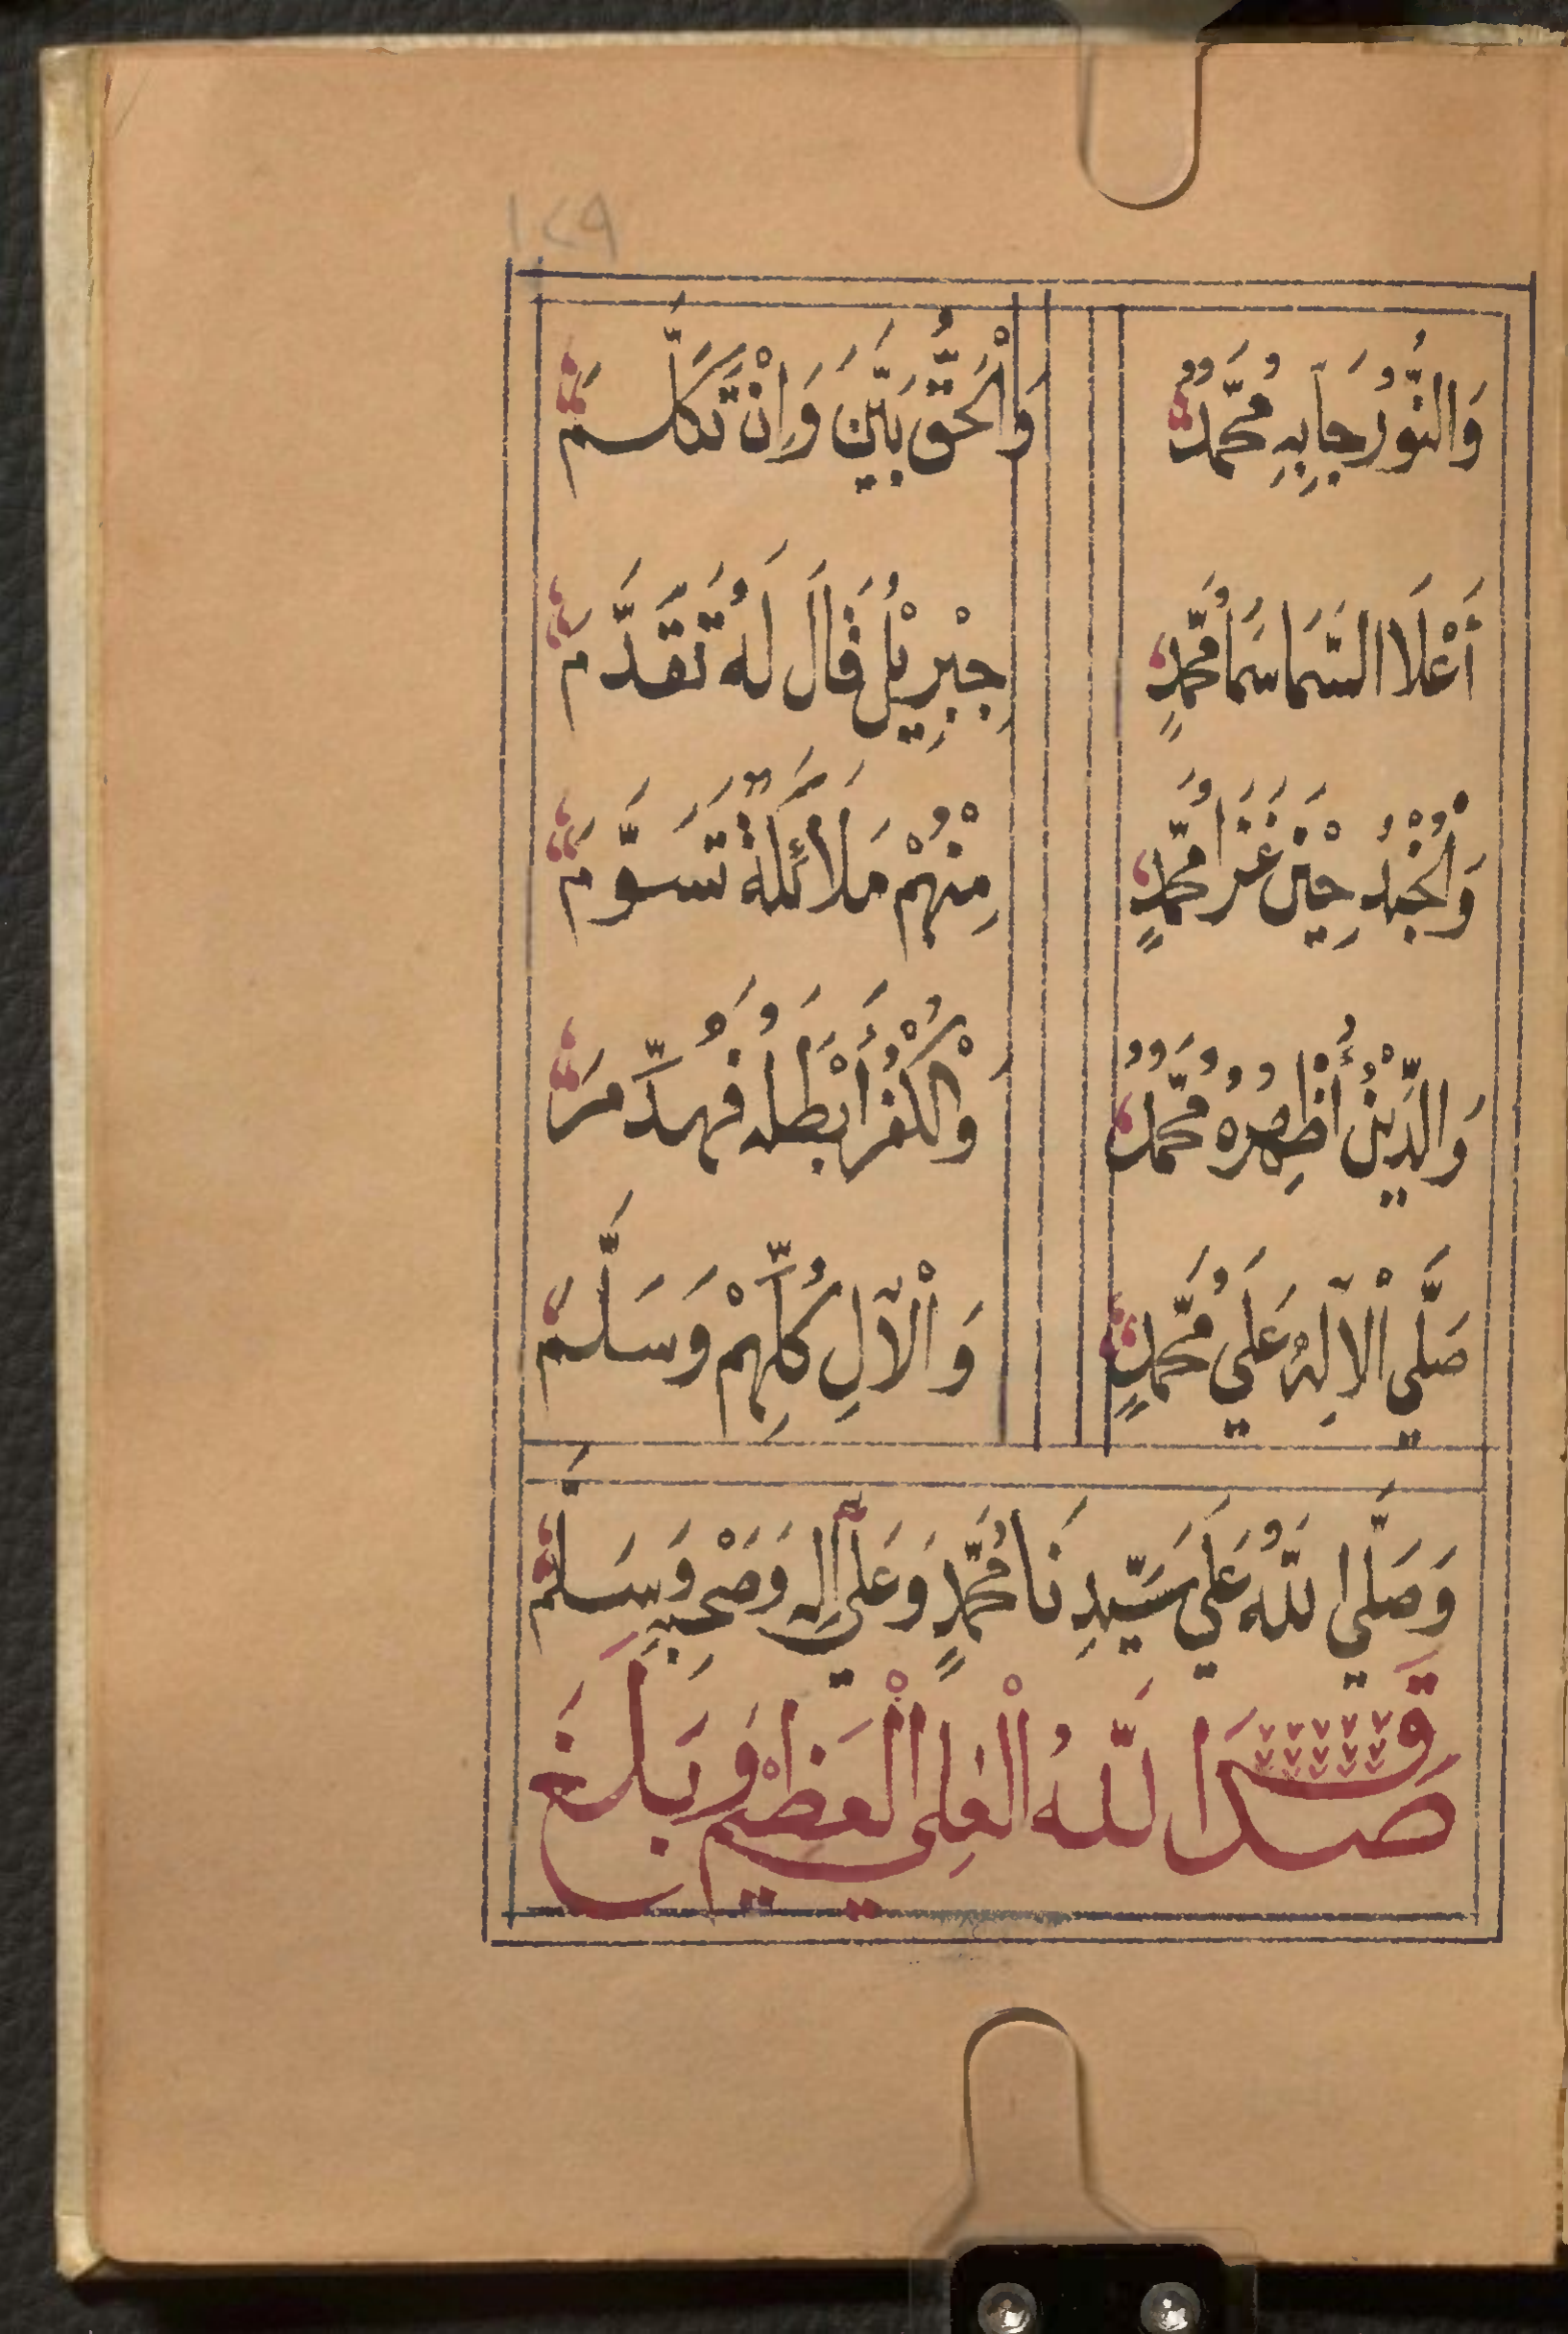 ١٤٩
وَالنُّوْرُ جَابِهِ مُحَمَّدٌ وَالْحَقُّ بَيَّنَ وَاِنْ تَكَلَّمَ
أَعْلَا السَّمَا سَمَا مُحَمَّدٍ جِبْرِيْلُ قَالَ لَهُ تَقَدَّمَ
وَالْجُنْدُ حِيْنَ غَزَا مُحَمَّدٍ مِنْهُمْ مَلَائِكَةٌ تَسَوَّمَ
وَالدِّيْنُ أُظْهِرُهُ مُحَمَّدٌ وَالْكُفْرُ أَبْطَلَهُ فَهُدِّمَ
صَلَّي الْاِلٰهُ عَلَي مُحَمَّدٍ وَالْآلِ كُلِّهِمْ وَسَلَّمَ
وَصَلَّي اللّٰهُ عَلَي سَيِّدِنَا مُحَمَّدٍ وَعَلَي آلِهِ وَصَحْبِهِ وَسَلَّمَ
صَدَقَ اللّٰهُ الْعَلِي الْعَظِيْم وَبَلَغَ